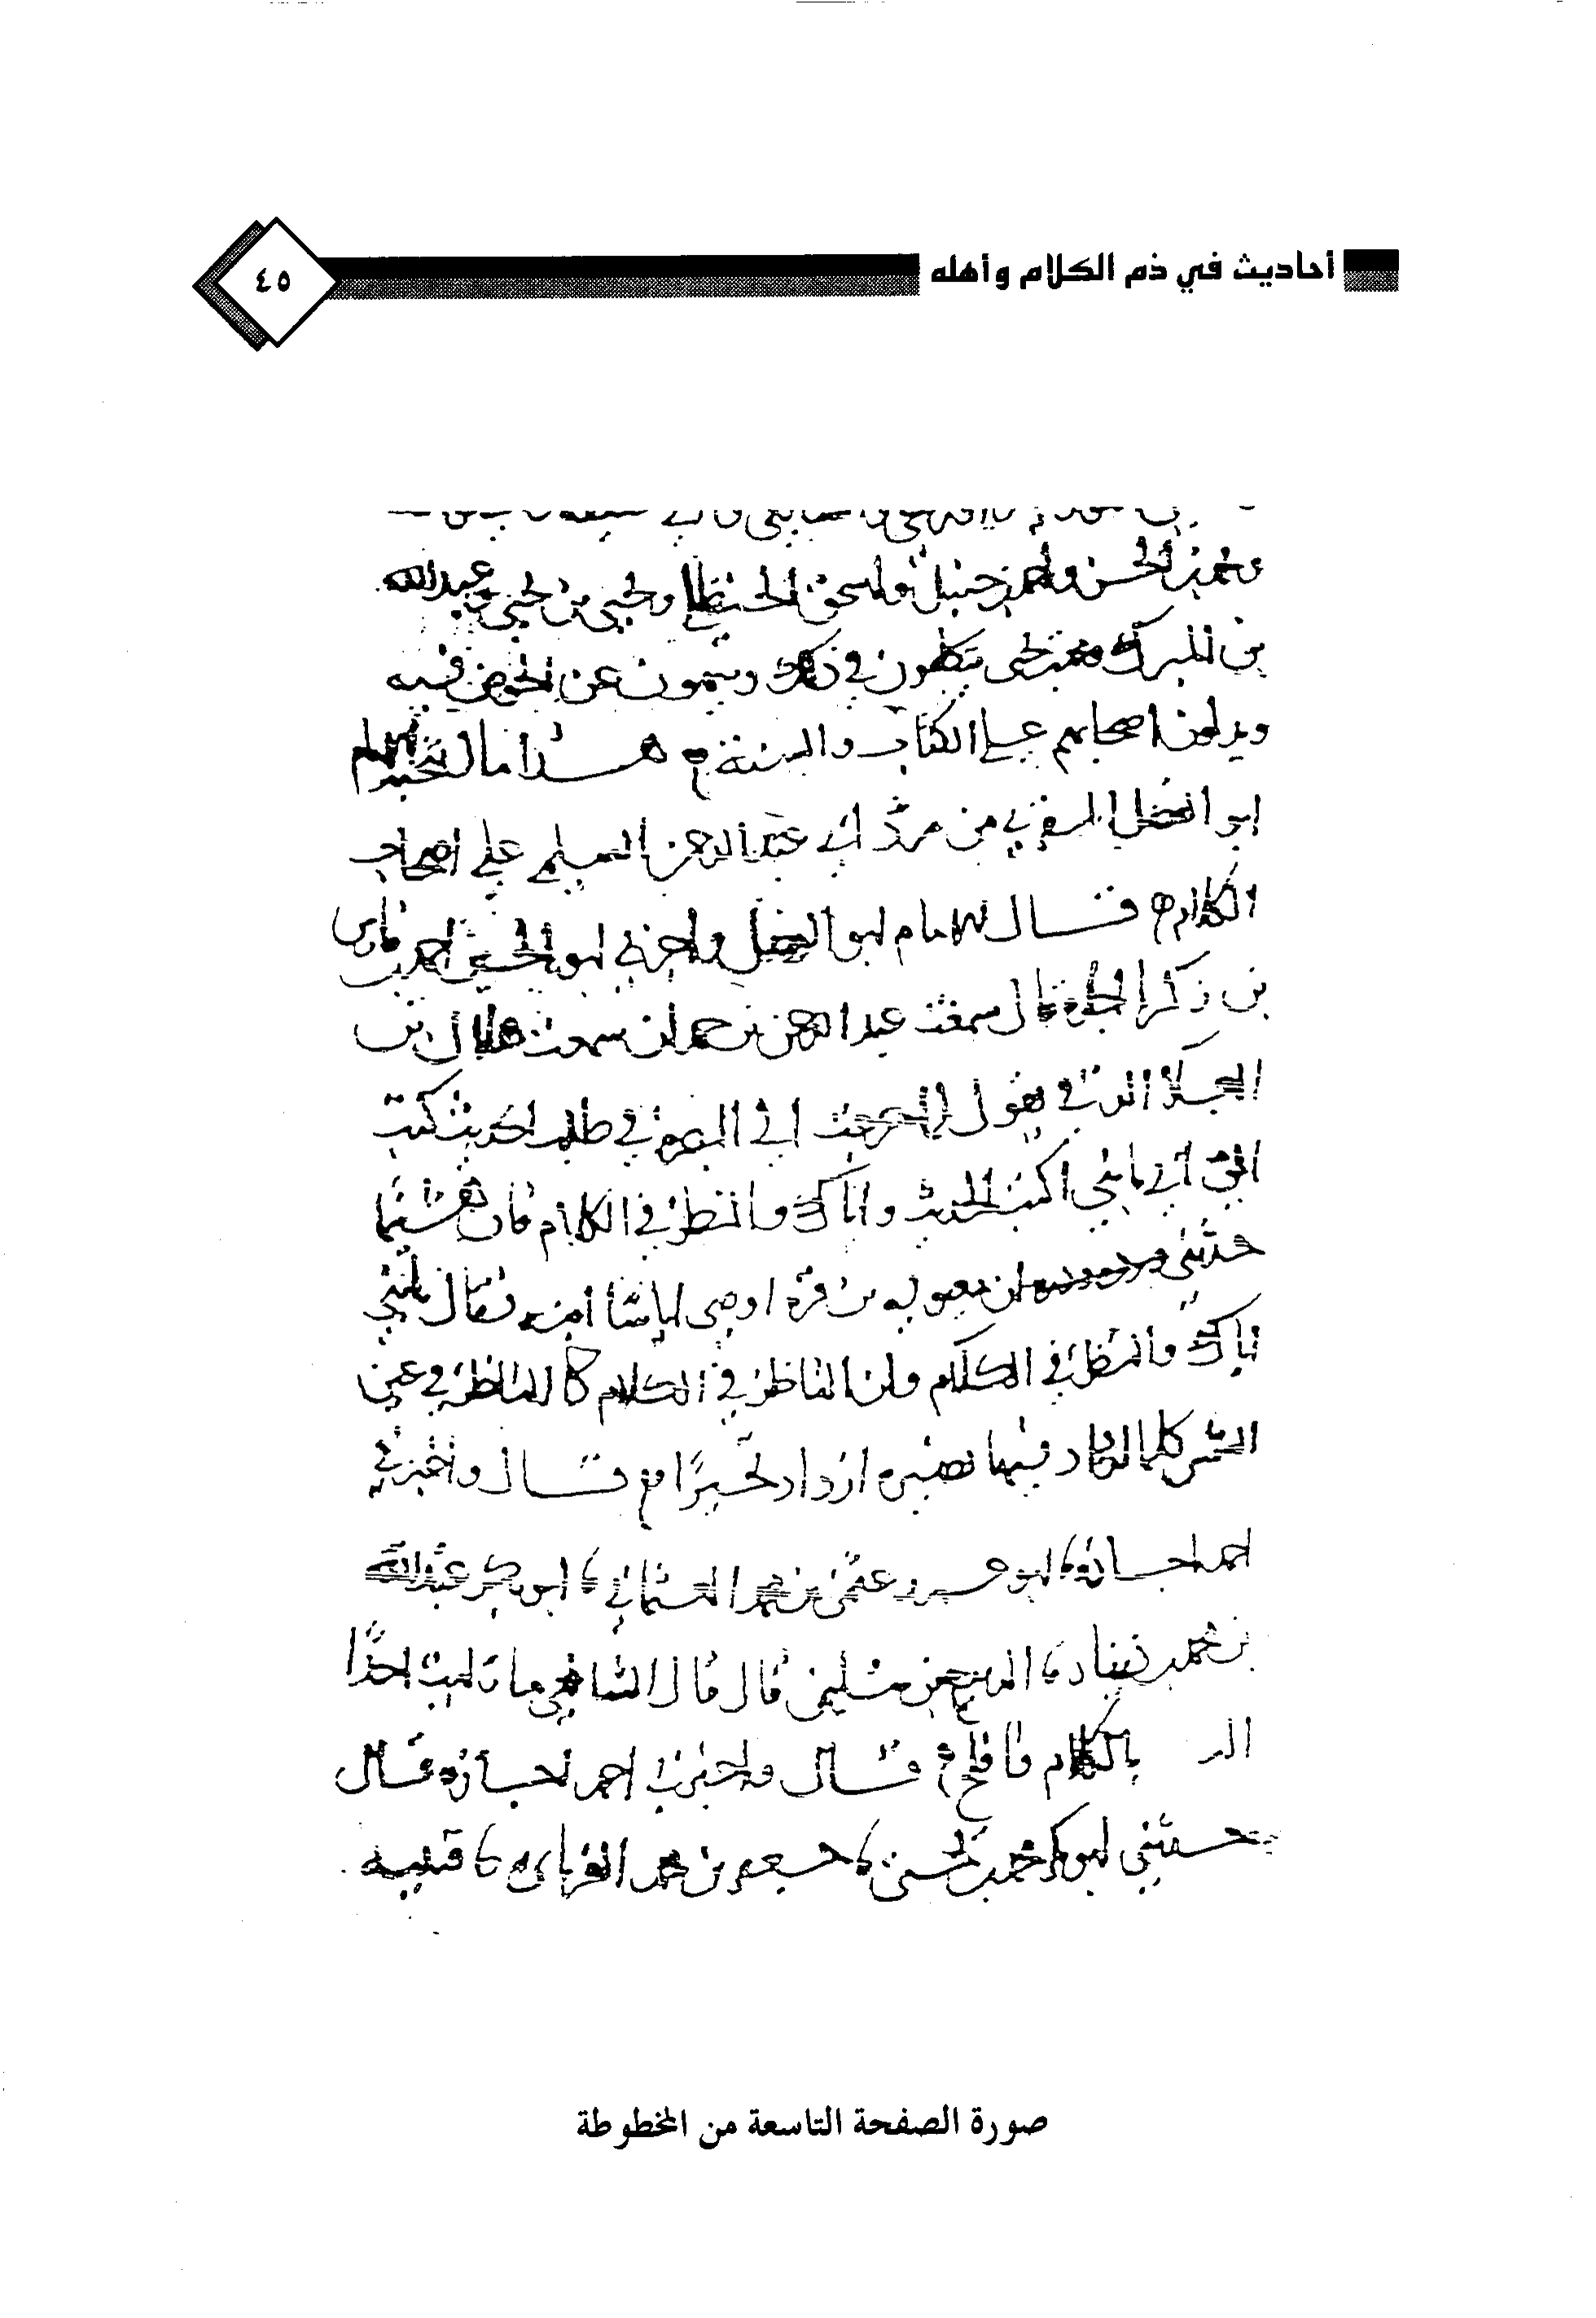 أحاديث في ذم الكلام وأهله
٤٥
ومحمد بن الحسن واحمد بن حنبل واسحق الحنظلي ويحيى بن يحيى وعبد الله
بن المبرك ومحمد بن يحيى يتكلمون في ذلك وينهون عن الخوض فيه
ويدلون اصحابهم على الكتاب والسنة هذا ما انتخبه الامام
ابو الفضل المقري من رد ابي عبد الرحمن السلمي على اصحاب
الكلام قال الامام ابو الفضل واخبرني ابو الحسين احمد بن فارس
بن زكريا قال سمعت عبد الرحمن بن حمدان سمعت هلال بن
العلا الرقي يقول لما خرجت الى البصرة في طلب الحديث كتب
الي ابي يا بني اكتب الحديث واياك والنظر في الكلام فان
حدثني ان معوية بن قرة اوصى اياسا ابنه فقال يا بني
اياك والنظر في الكلام وان الناظر في الكلام كالناظر في عين
الشمس كلما ازداد فيها بصيرة ازداد تحيرا قال واخبرني
احمد اجازة نا ابو عمرو عثمن بن محمد العثماني نا ابو بكر عبد الله
بن محمد بن زياد نا الربيع بن سليمن قال قال الشافعي ما رايت احدا
بالكلام فافلح قال واخبرنا احمد اجازة قال
حدثني ابو بكر محمد بن الحسين نا جعفر بن محمد الفريابي نا قتيبة
صورة الصفحة التاسعة من المخطوطة